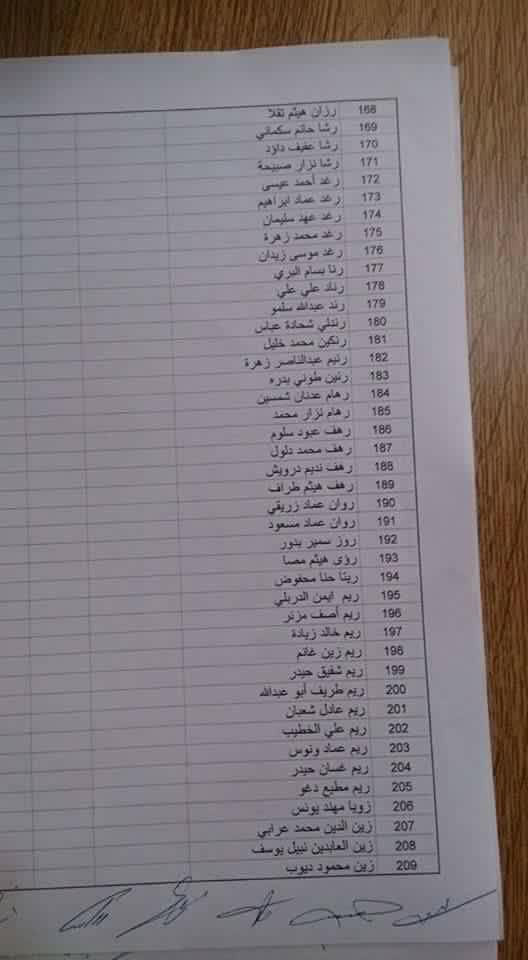 168 رزان هيثم تقلا
169 رشا حاتم سكماني
170 رشا عفيف داؤد
171 رشا نزار صبيحة
172 رغد أحمد عيسى
173 رغد عماد ابراهيم
174 رغد عهد سليمان
175 رغد محمد زهرة
176 رغد موسى زيدان
177 رنا بسام البري
178 رناد علي علي
179 رند عبدالله سلمو
180 رندلي شحادة عباس
181 رنكين محمد خليل
182 رنيم عبدالناصر زهرة
183 رنين طوني بدره
184 رهام عدنان شمسين
185 رهام نزار محمد
186 رهف عبود سلوم
187 رهف محمد دلول
188 رهف نديم درويش
189 رهف هيثم طراف
190 روان عماد زريقي
191 روان عماد مسعود
192 روز سمير بدور
193 رؤى هيثم مصا
194 ريتا حنا محفوض
195 ريم ايمن الدربلي
196 ريم أصف مزنر
197 ريم خالد زيادة
198 ريم زين غانم
199 ريم شفيق حيدر
200 ريم طريف أبو عبدالله
201 ريم عادل شعبان
202 ريم علي الخطيب
203 ريم عماد ونوس
204 ريم غسان حيدر
205 ريم مطيع دغو
206 زويا مهلد يونس
207 زين الدين محمد عرابي
208 زين العابدين نبيل يوسف
209 زين محمود ديوب